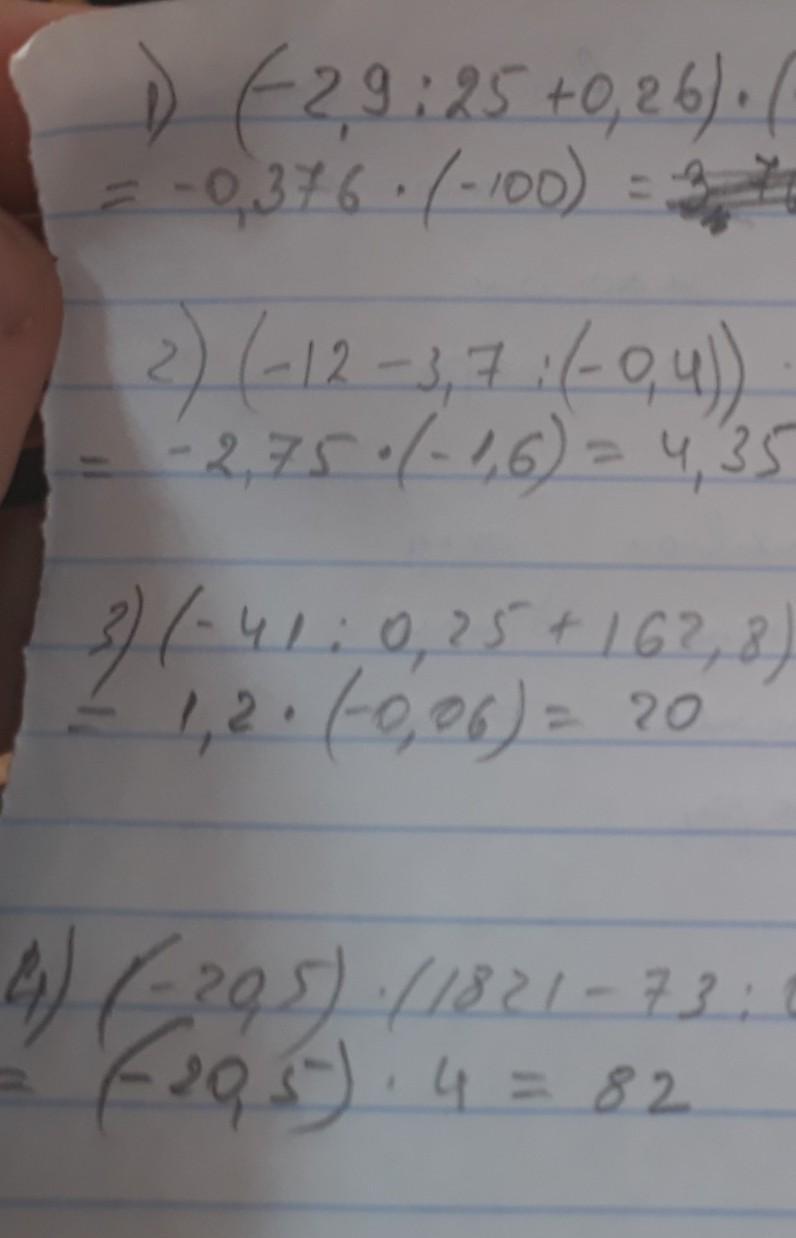 1) (-2,9 : 25 + 0,26) · (
= -0,376 · (-100) =
2) (-12 - 3,7 : (-0,4)) ·
= -2,75 · (-1,6) = 4,35
3) (-41 : 0,25 + 162,8)
= 1,2 · (-0,06) = 20
4) (-20,5) · (1821 - 73 :
= (-20,5) · 4 = 82